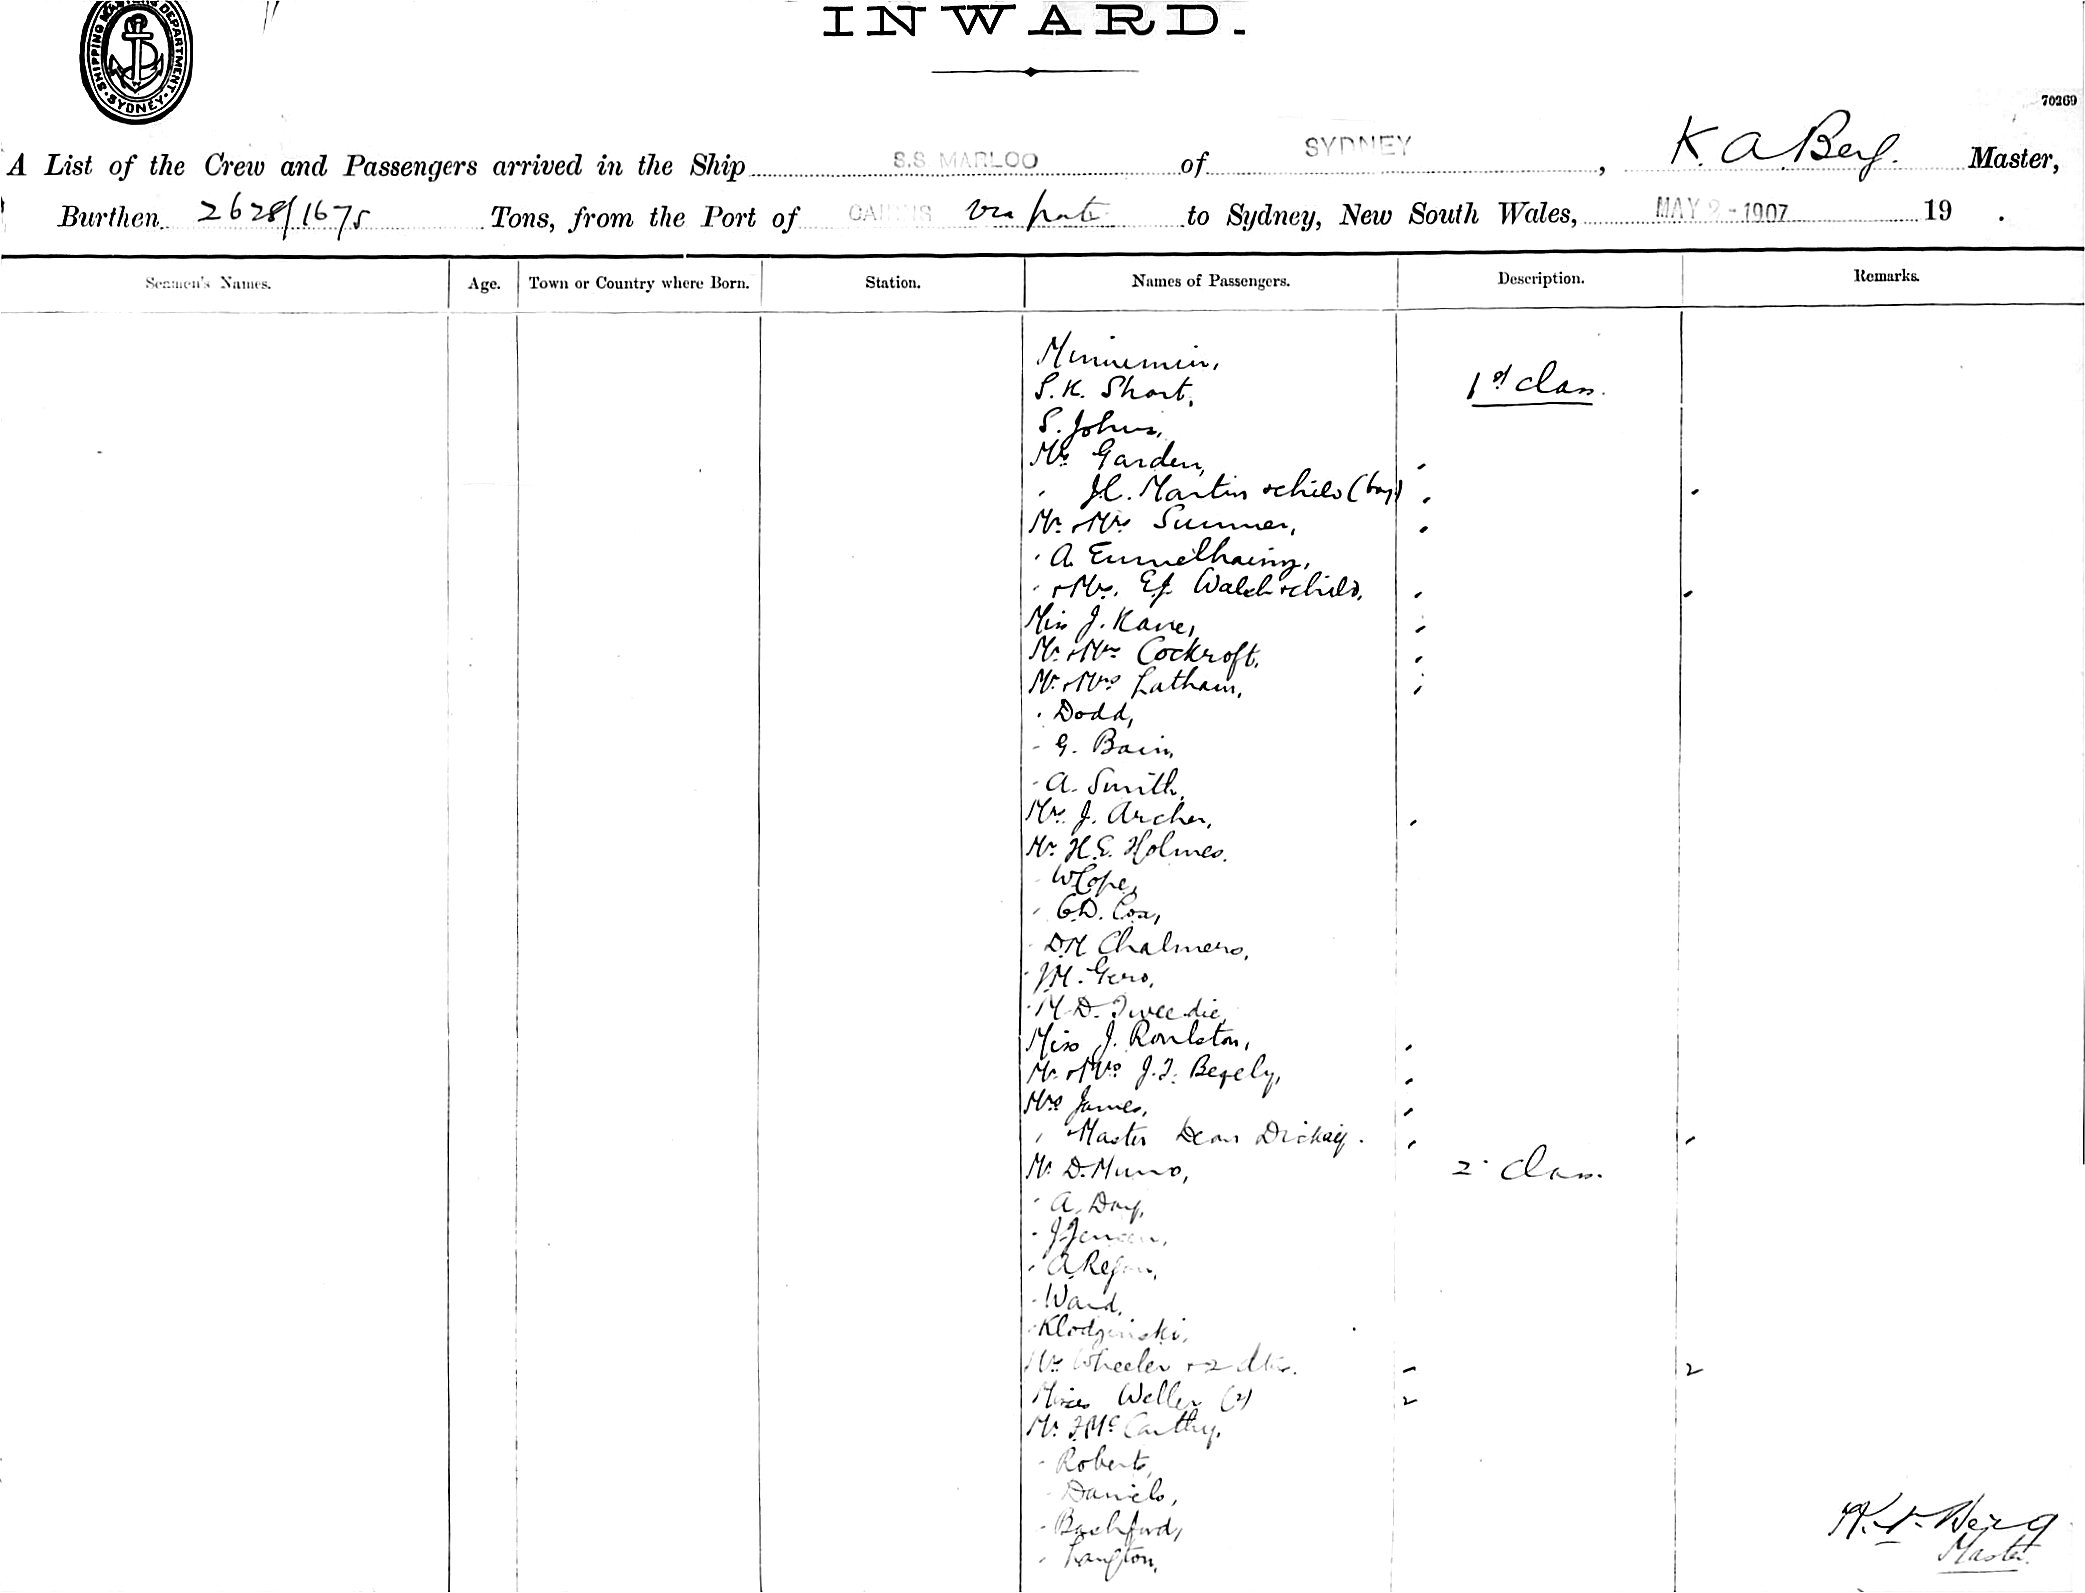 SHIPPING MASTERS DEPARTMENT. SYDNEY.
INWARD.
70269
A List of the Crew and Passengers arrived in the Ship S.S. MARLOO of SYDNEY, K. A. Berg. Master,
Burthen 2628/1675 Tons, from the Port of CAIRNS via ports to Sydney, New South Wales, MAY 2 - 1907 19 .
Seamen's Names. Age. Town or Country where Born. Station. Names of Passengers. Description. Remarks.
S. K. Short, 1st Class.
S. Johns,
Mrs Garden,
" J.C. Martin & child (boy)
Mr & Mrs Sumner,
" A.
" & Mrs. E.J. Walsh & child,
Miss J. Kane,
Mr. & Mrs Cockroft,
Mr. & Mrs Latham,
" Dodd,
" G. Bain,
" A. Smith,
Mrs. J. Archer,
Mr. H.E. Holmes.
" W Cope,
" C.D. Cox,
" D.H Chalmers,
" J.M. Gero,
" M. D. Tweedie,
Miss J. Roulston,
Mr. & Mrs J.F. Begely,
Mrs James,
" Master Dean
Mr. D. Munro, 2" Class.
" A. Day,
" J. Jensen,
" A. Regan,
" Ward,
" Klodginski,
Mrs Wheeler & 2 dtrs. 2
Misses Weller (2) 2
Mr. F. McCarthy,
" Roberts,
" Daniels,
" Bashford,
" Langton,
K. A. Berg
Master.